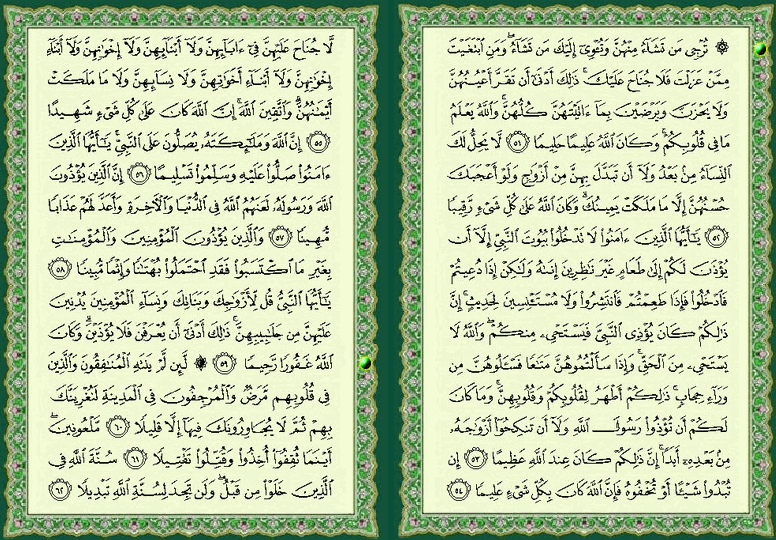 ۞ تُرْجِى مَن تَشَآءُ مِنْهُنَّ وَتُـْٔوِىٓ إِلَيْكَ مَن تَشَآءُ ۖ وَمَنِ ٱبْتَغَيْتَ
مِمَّنْ عَزَلْتَ فَلَا جُنَاحَ عَلَيْكَ ۚ ذَٰلِكَ أَدْنَىٰٓ أَن تَقَرَّ أَعْيُنُهُنَّ
وَلَا يَحْزَنَّ وَيَرْضَيْنَ بِمَآ ءَاتَيْتَهُنَّ كُلُّهُنَّ ۚ وَٱللَّهُ يَعْلَمُ
مَا فِى قُلُوبِكُمْ ۚ وَكَانَ ٱللَّهُ عَلِيمًا حَلِيمًا ٥١ لَّا يَحِلُّ لَكَ
ٱلنِّسَآءُ مِنۢ بَعْدُ وَلَآ أَن تَبَدَّلَ بِهِنَّ مِنْ أَزْوَٰجٍ وَلَوْ أَعْجَبَكَ
حُسْنُهُنَّ إِلَّا مَا مَلَكَتْ يَمِينُكَ ۗ وَكَانَ ٱللَّهُ عَلَىٰ كُلِّ شَىْءٍ رَّقِيبًا
٥٢ يَٰٓأَيُّهَا ٱلَّذِينَ ءَامَنُوا۟ لَا تَدْخُلُوا۟ بُيُوتَ ٱلنَّبِىِّ إِلَّآ أَن
يُؤْذَنَ لَكُمْ إِلَىٰ طَعَامٍ غَيْرَ نَٰظِرِينَ إِنَىٰهُ وَلَٰكِنْ إِذَا دُعِيتُمْ
فَٱدْخُلُوا۟ فَإِذَا طَعِمْتُمْ فَٱنتَشِرُوا۟ وَلَا مُسْتَـْٔنِسِينَ لِحَدِيثٍ ۚ إِنَّ
ذَٰلِكُمْ كَانَ يُؤْذِى ٱلنَّبِىَّ فَيَسْتَحْىِۦ مِنكُمْ ۖ وَٱللَّهُ لَا
يَسْتَحْىِۦ مِنَ ٱلْحَقِّ ۚ وَإِذَا سَأَلْتُمُوهُنَّ مَتَٰعًا فَسْـَٔلُوهُنَّ مِن
وَرَآءِ حِجَابٍ ۚ ذَٰلِكُمْ أَطْهَرُ لِقُلُوبِكُمْ وَقُلُوبِهِنَّ ۚ وَمَا كَانَ
لَكُمْ أَن تُؤْذُوا۟ رَسُولَ ٱللَّهِ وَلَآ أَن تَنكِحُوٓا۟ أَزْوَٰجَهُۥ
مِنۢ بَعْدِهِۦٓ أَبَدًا ۚ إِنَّ ذَٰلِكُمْ كَانَ عِندَ ٱللَّهِ عَظِيمًا ٥٣ إِن
تُبْدُوا۟ شَيْـًٔا أَوْ تُخْفُوهُ فَإِنَّ ٱللَّهَ كَانَ بِكُلِّ شَىْءٍ عَلِيمًا ٥٤
لَّا جُنَاحَ عَلَيْهِنَّ فِىٓ ءَابَآئِهِنَّ وَلَآ أَبْنَآئِهِنَّ وَلَآ إِخْوَٰنِهِنَّ وَلَآ أَبْنَآءِ
إِخْوَٰنِهِنَّ وَلَآ أَبْنَآءِ أَخَوَٰتِهِنَّ وَلَا نِسَآئِهِنَّ وَلَا مَا مَلَكَتْ
أَيْمَٰنُهُنَّ ۗ وَٱتَّقِينَ ٱللَّهَ ۚ إِنَّ ٱللَّهَ كَانَ عَلَىٰ كُلِّ شَىْءٍ شَهِيدًا
٥٥ إِنَّ ٱللَّهَ وَمَلَٰٓئِكَتَهُۥ يُصَلُّونَ عَلَى ٱلنَّبِىِّ ۚ يَٰٓأَيُّهَا ٱلَّذِينَ
ءَامَنُوا۟ صَلُّوا۟ عَلَيْهِ وَسَلِّمُوا۟ تَسْلِيمًا ٥٦ إِنَّ ٱلَّذِينَ يُؤْذُونَ
ٱللَّهَ وَرَسُولَهُۥ لَعَنَهُمُ ٱللَّهُ فِى ٱلدُّنْيَا وَٱلْءَاخِرَةِ وَأَعَدَّ لَهُمْ عَذَابًا
مُّهِينًا ٥٧ وَٱلَّذِينَ يُؤْذُونَ ٱلْمُؤْمِنِينَ وَٱلْمُؤْمِنَٰتِ
بِغَيْرِ مَا ٱكْتَسَبُوا۟ فَقَدِ ٱحْتَمَلُوا۟ بُهْتَٰنًا وَإِثْمًا مُّبِينًا ٥٨
يَٰٓأَيُّهَا ٱلنَّبِىُّ قُل لِّأَزْوَٰجِكَ وَبَنَاتِكَ وَنِسَآءِ ٱلْمُؤْمِنِينَ يُدْنِينَ
عَلَيْهِنَّ مِن جَلَٰبِيبِهِنَّ ۚ ذَٰلِكَ أَدْنَىٰٓ أَن يُعْرَفْنَ فَلَا يُؤْذَيْنَ ۗ وَكَانَ
ٱللَّهُ غَفُورًا رَّحِيمًا ٥٩ ۞ لَّئِن لَّمْ يَنتَهِ ٱلْمُنَٰفِقُونَ وَٱلَّذِينَ
فِى قُلُوبِهِم مَّرَضٌ وَٱلْمُرْجِفُونَ فِى ٱلْمَدِينَةِ لَنُغْرِيَنَّكَ
بِهِمْ ثُمَّ لَا يُجَاوِرُونَكَ فِيهَآ إِلَّا قَلِيلًا ٦٠ مَّلْعُونِينَ ۖ
أَيْنَمَا ثُقِفُوٓا۟ أُخِذُوا۟ وَقُتِّلُوا۟ تَقْتِيلًا ٦١ سُنَّةَ ٱللَّهِ فِى
ٱلَّذِينَ خَلَوْا۟ مِن قَبْلُ ۖ وَلَن تَجِدَ لِسُنَّةِ ٱللَّهِ تَبْدِيلًا ٦٢